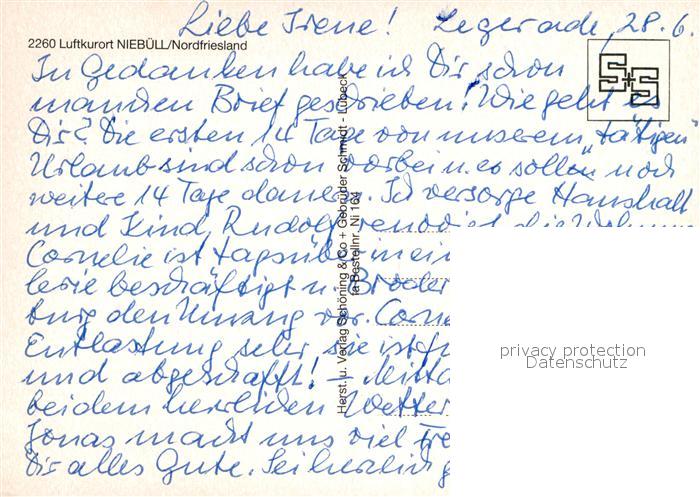 Liebe Irene! Legerade, 28.6.
2260 Luftkurort NIEBÜLL/Nordfriesland
S+S
In Gedanken habe ich Dir schon
manchen Brief geschrieben! Wie geht es
Dir? Die ersten 14 Tage von unserem „tätigen"
Urlaub sind schon vorbei u. es sollen noch
weitere 14 Tage dauern. Ich versorge Haushalt
und Kind, Rudolf renoviert die
Cornelie ist tagsüber in ei
lerie beschäftigt u.
burg den Umzug vor. Corne
Entlastung sehr, sie ist
und abgeschafft! –
bei dem herrlichen Wetter
Jonas macht uns viel Fre
Dir alles Gute. Sei herzlich g
Herst. u. Verlag Schöning & Co + Gebrüder Schmidt - Lübeck
Bestellnr. Ni 164
privacy protection
Datenschutz